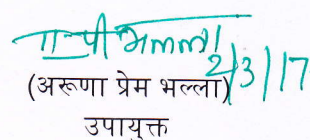 भल्ला
2/3/17
(अरूणा प्रेम भल्ला)
उपायुक्त